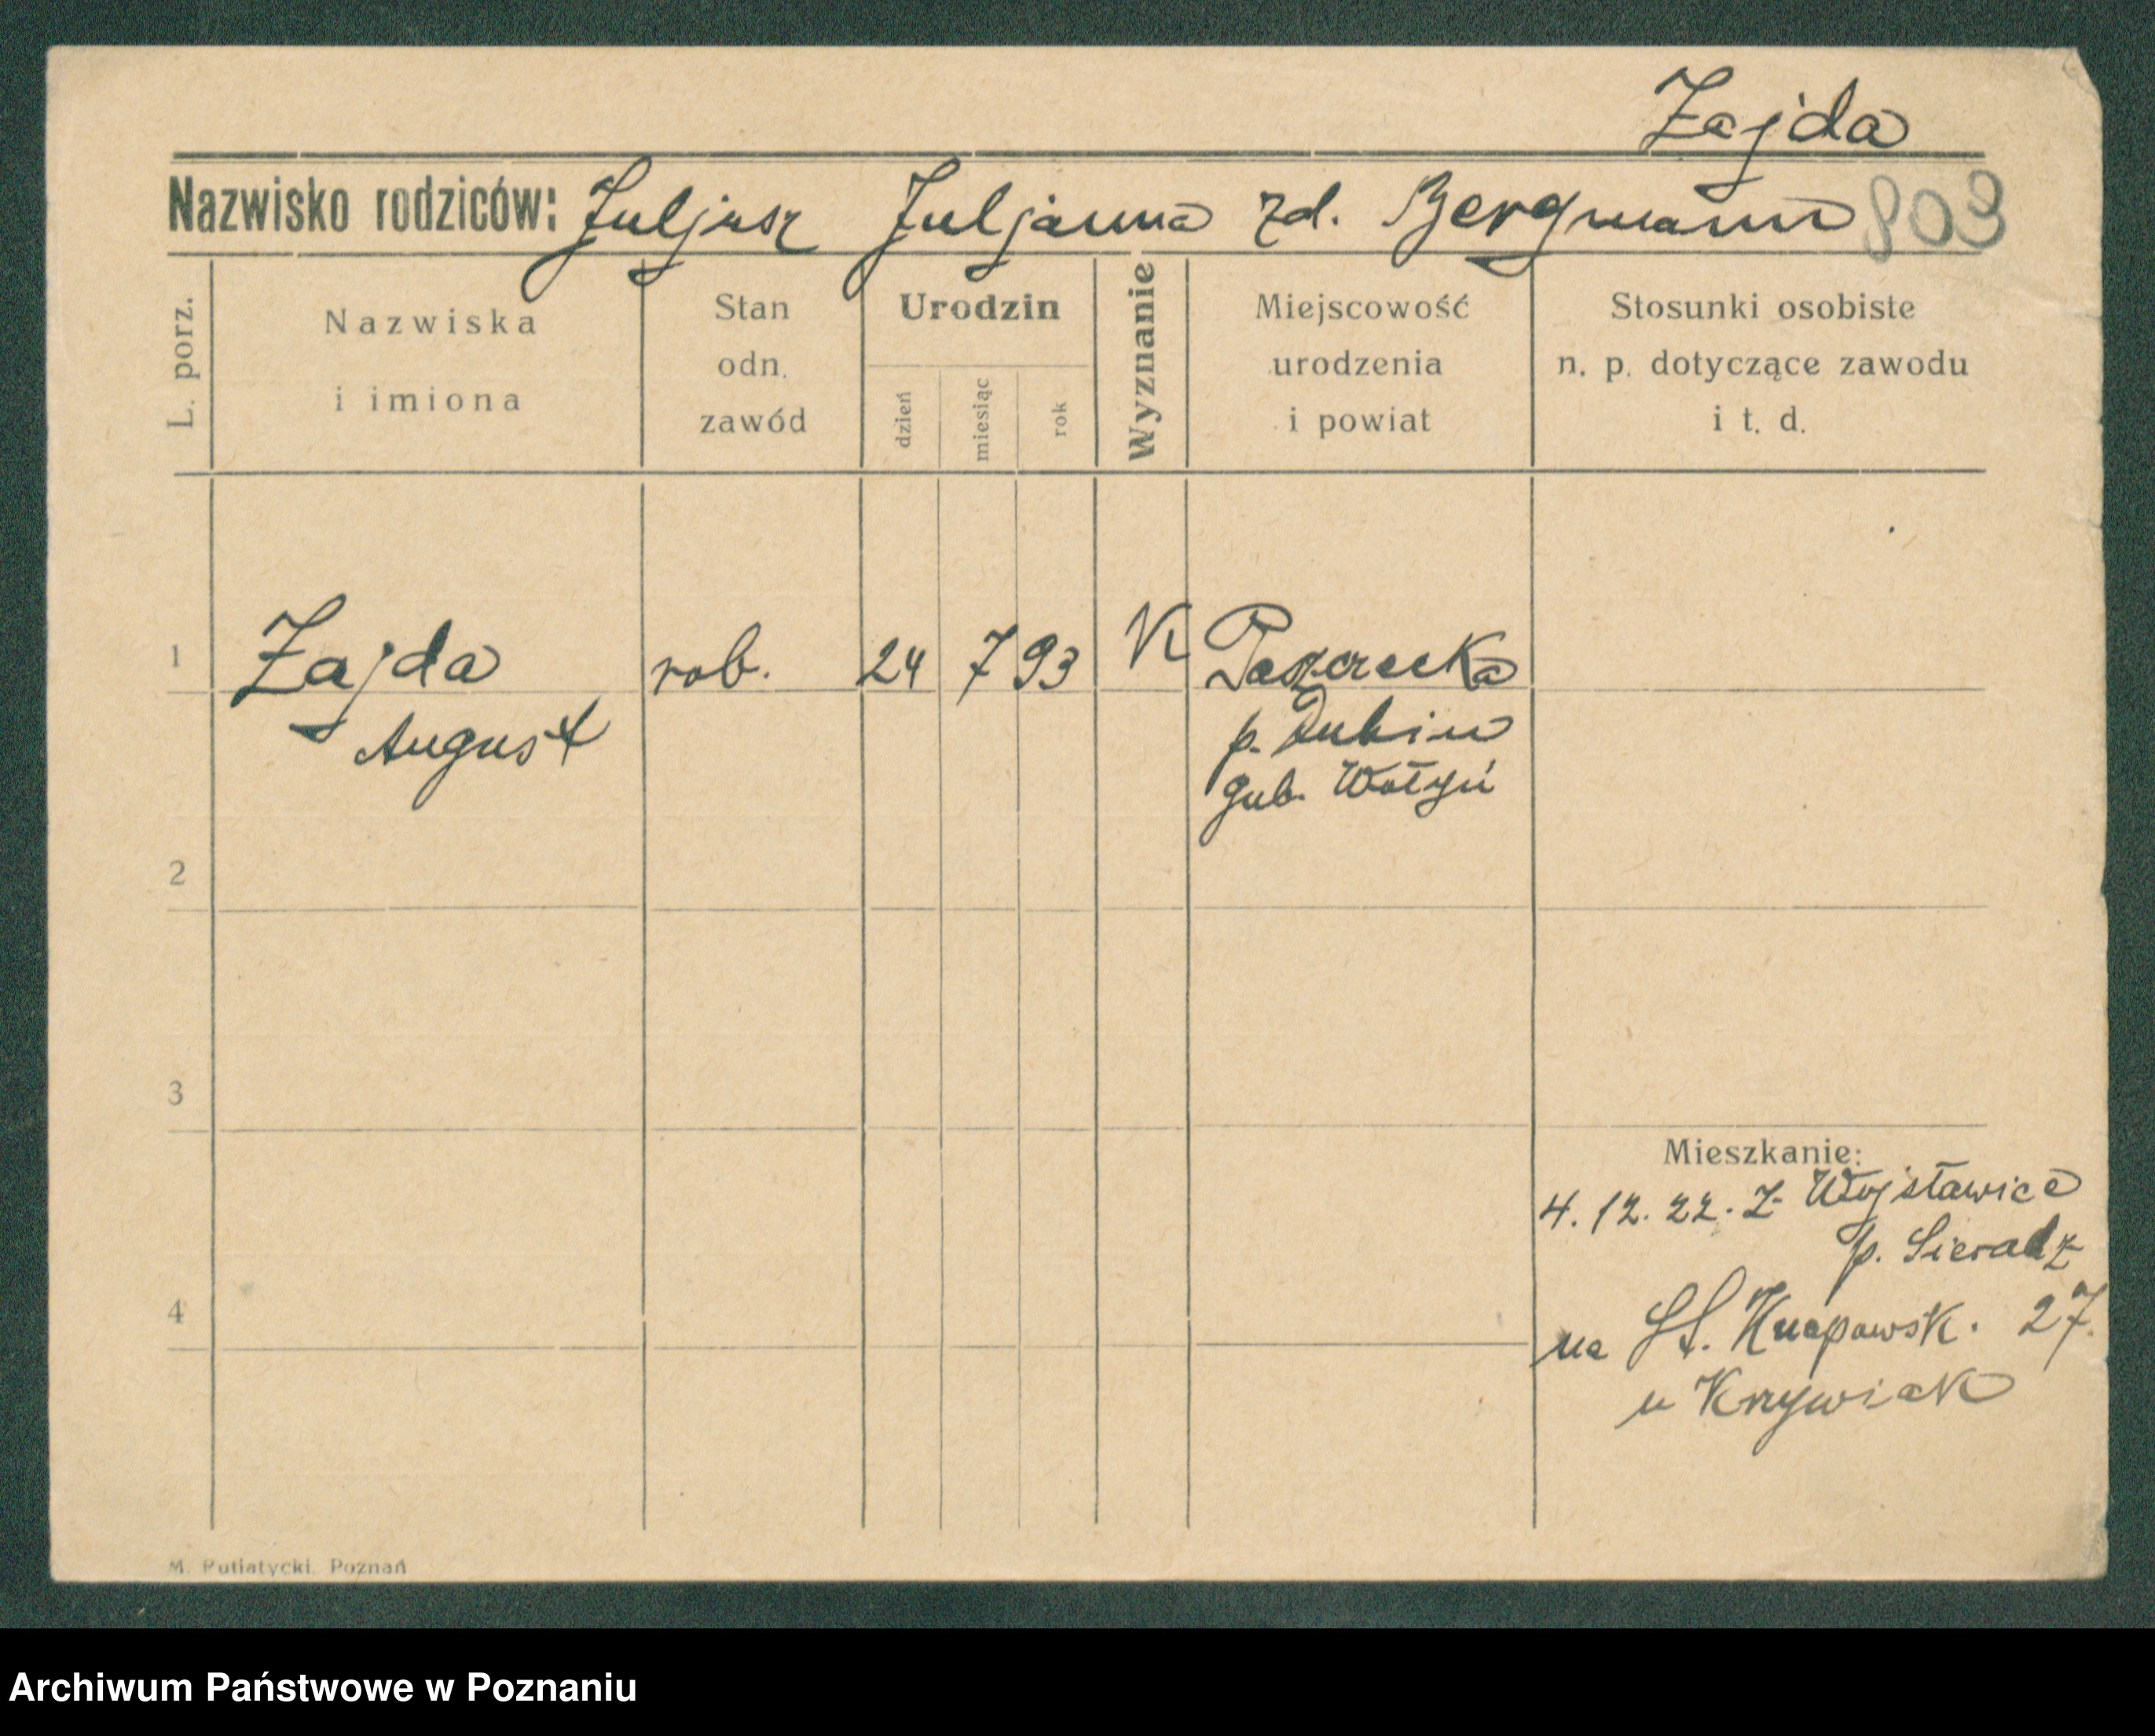 Zajda
Nazwisko rodziców: Juljusz Juljanna zd. Bergmann 803
L. porz.
Nazwiska i imiona
Stan odn. zawód
Urodzin
dzień
miesiąc
rok
Wyznanie
Miejscowość urodzenia i powiat
Stosunki osobiste n. p. dotyczące zawodu i t. d.
1 Zajda rob. 24 7 93 K
August p. Dubin
gub. Wołyń
2
3
Mieszkanie:
4. 12. 22. Z Wojsławice
p. Sieradz
4
na St. Knapowsk. 27.
u Krzywiak
M. Putiatycki. Poznań
Archiwum Państwowe w Poznaniu